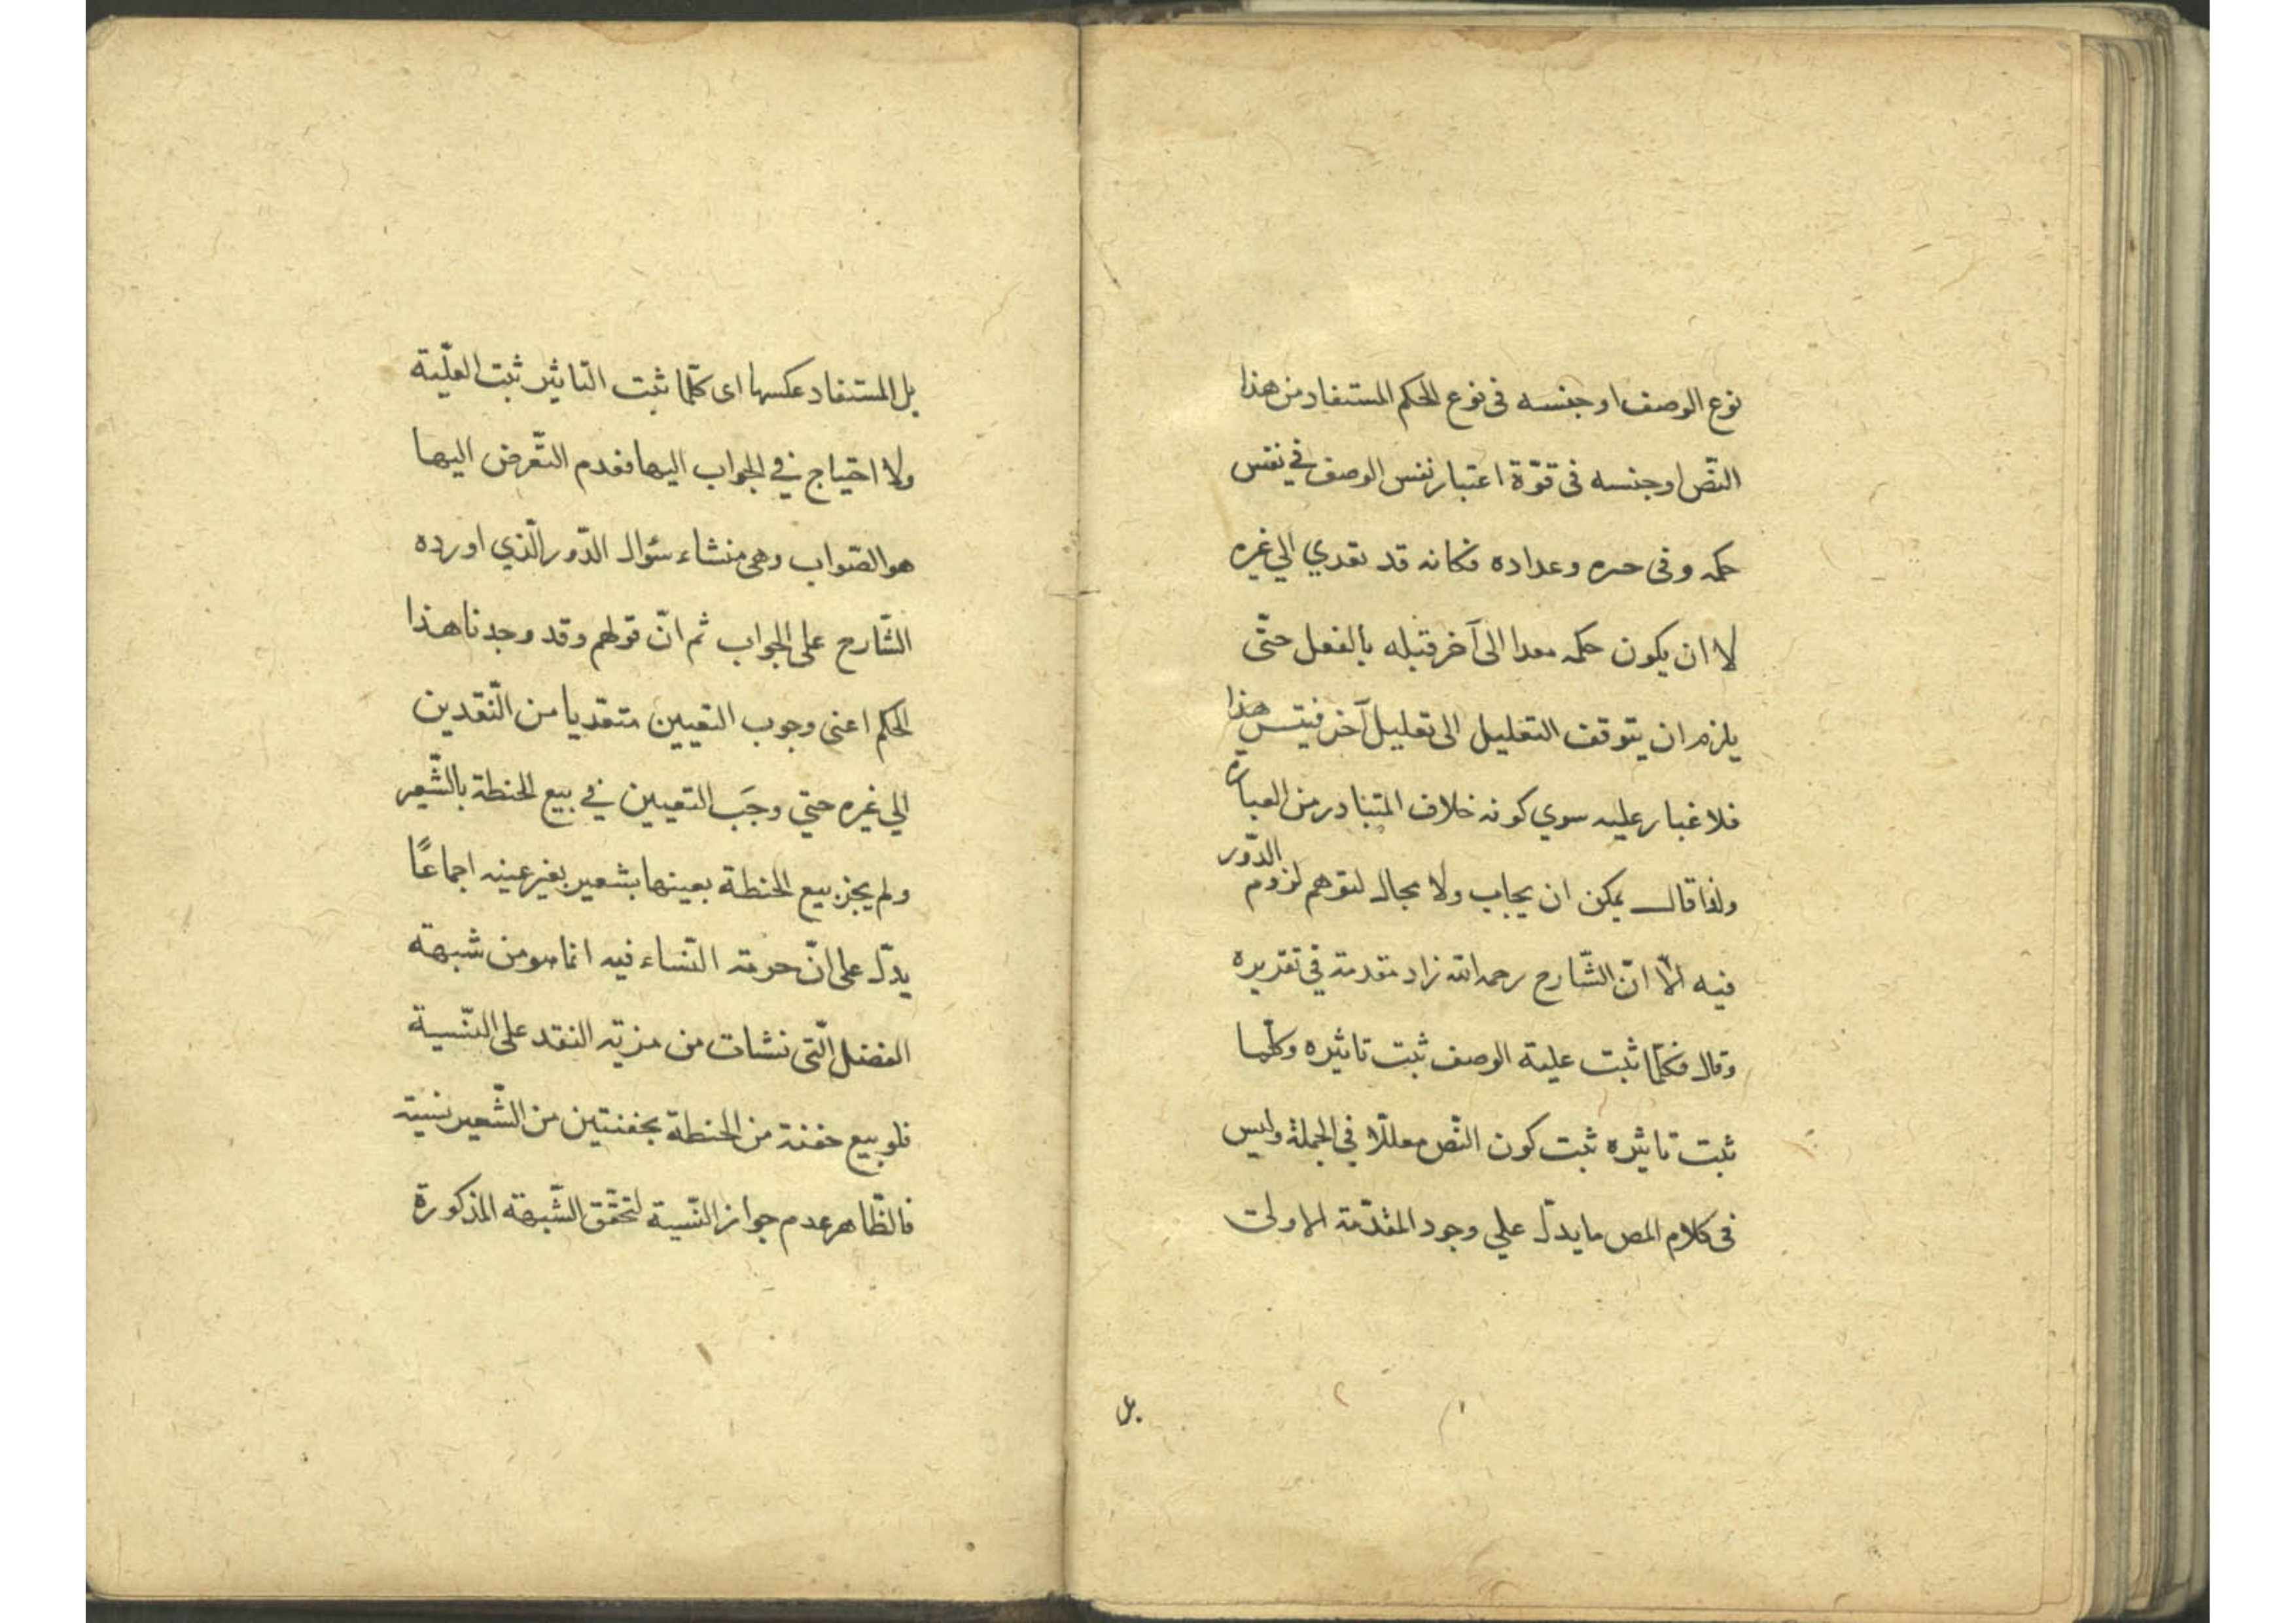 نوع الوصف او جنسه فى نوع الحكم المستفاد من هذا
النّص او جنسه فى قوّة اعتبار نفس الوصف في نفس
حكمه وفى وعداده فكانه قد تعدي الي غيره
لا ان يكون حكمه معدا الى آخر قبله بالفعل حتّى
يلزم ان يتوقف التعليل الى تعليل آخر هذا
فلا غبار عليه سوي كونه خلاف المتبادر من العبارة
ولذا قال يمكن ان يجاب ولا مجال لتوهم لزوم الدّور
فيه الّا انّ الشّارح رحمه الله زاد مقدمة في تقريره
وقال فكلّما ثبت علية الوصف ثبت تاثيره وكلّما
ثبت تاثيره ثبت كون النّص معللّا في الجملة وليس
فى كلام المص ما يدلّ علي وجود المقدّمة الاولى
بل
بل المستفاد عكسها اى كلّما ثبت التّاثير ثبت العلّية
ولا احتياج في الجواب اليها فعدم التّعرض اليها
هو الصّواب وهى منشاء سئوال الدّور الّذي اورده
الشّارح على الجواب ثم انّ قولهم وقد وجدنا هذا
الحكم اعنى وجوب التعيين متعّديا من النّقدين
الي غيره حتي وجَب التعيين في بيع الحنطة بالشّعير
ولم يجز بيع الحنطة بعينها بشعير بغير عينه اجماعًا
يدلّ على انّ حرمة النّساء فيه انما هو من شبهة
الفضل الّتى نشات من مزيّة النقد على النّسية
فلو بيع حفنة من الحنطة بحفنتين من الشّعير نسية
فالظّاهر عدم جواز النّسية لتحقّق الشّبهة المذكورة